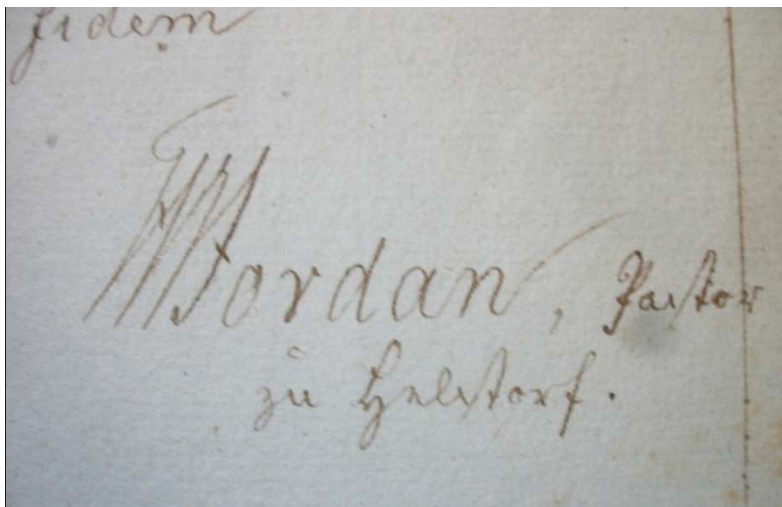 fidem
Jordan, Pastor
zu Helstorf.